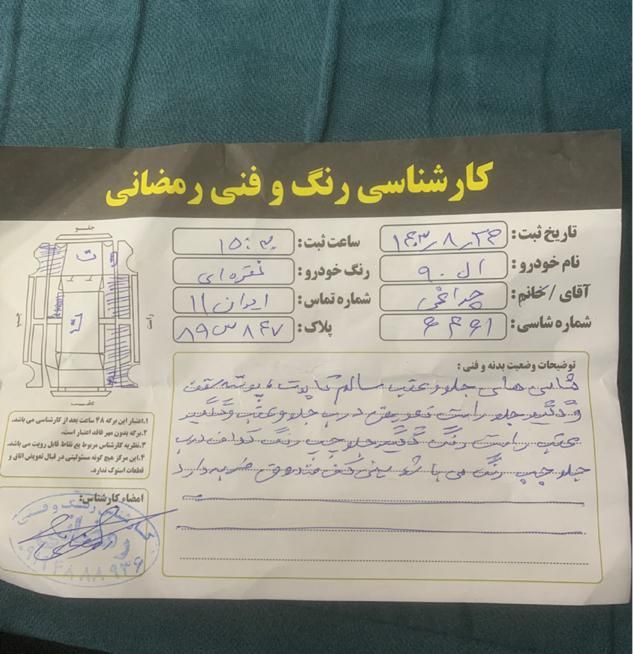 کارشناسی رنگ و فنی رمضانی
تاریخ ثبت: ۱۴۰۳/۸/۲۶
ساعت ثبت: ۱۵:۳۰
نام خودرو: ال ۹۰
رنگ خودرو: نقره‌ای
آقای/خانم: چراغی
شماره تماس: ایران ۱۱
شماره شاسی: ۶۴۶۱
پلاک: ۸۹س۸۴۷
جلو
ت
ت
چپ
راست
عقب
توضیحات وضعیت بدنه و فنی:
شاسی های جلو و عقب سالم کاپوت و پوسته سقف
و گلگیر جلو راست تعویض درب جلو و عقب و گلگیر
عقب راست رنگ گلگیر جلو چپ رنگ درب
جلو چپ رنگ می باشد سینی کف صندوق ضربه دارد
۱.اعتبار این برگه ۴۸ ساعت بعد از کارشناسی می باشد.
۲.برگه بدون مهر فاقد اعتبار است.
۳.نظریه کارشناس مربوط به نقاط قابل رویت می باشد.
۴.این مرکز هیچ گونه مسئولیتی در قبال تعویض اتاق و
قطعات استوک ندارد.
امضاء کارشناس:
رنگ و فنی